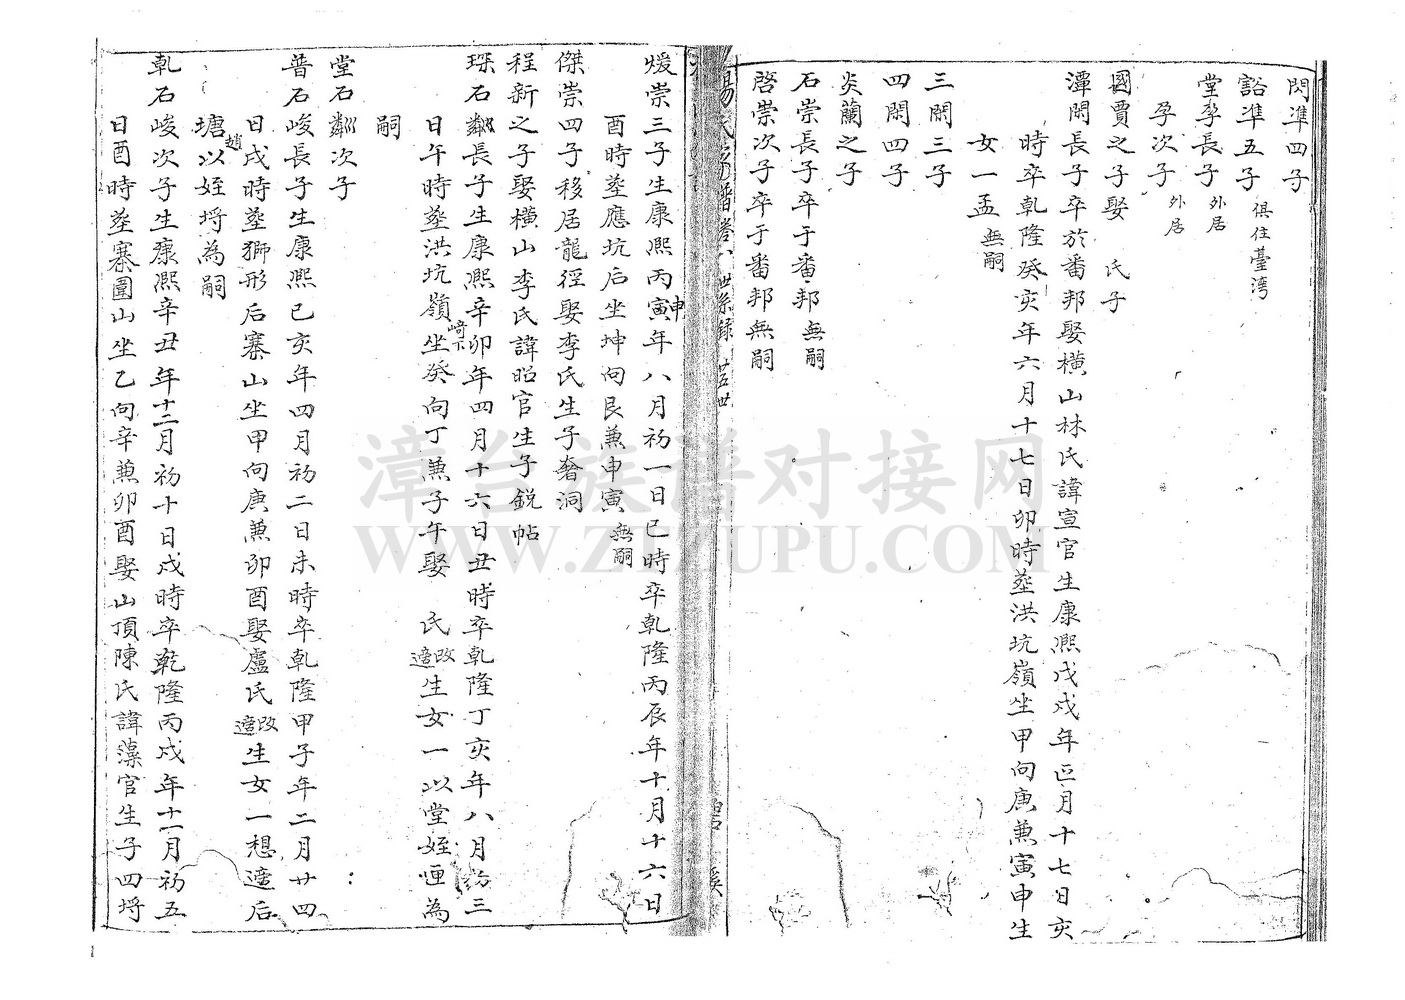 閃準四子
谽準五子 俱住臺湾
堂孚長子 外居
孕次子 外居
國賈之子娶 氏子
潭閑長子卒於番邦娶横山林氏諱宣官生康熙戊戍年正月十七日亥
時卒乹隆癸亥年六月十七日卯時塟洪坑嶺坐甲向庚兼寅申生
女一孟 無嗣
三閑三子
四閑四子
炎蘭之子
石崇長子卒于番邦 無嗣
啓崇次子卒于番邦無嗣
楊氏宗譜卷八 世系録 廿五世
煖崇三子生康熈丙寅年八月初一日巳時卒乹隆丙辰年十月十六日
申
酉時塟應坑后坐坤向艮兼申寅 無嗣
傑崇四子移居龍徑娶李氏生子奢洞
程新之子娶横山李氏諱昭官生子鋭帖
琛石鄰長子生康熈辛卯年四月十六日丑時卒乹隆丁亥年八月初三
日午時塟洪坑嶺崎下坐癸向丁兼子午娶 氏改適生女一以堂姪哩為
嗣
堂石鄰次子
普石峻長子生康熙己亥年四月初二日未時卒乹隆甲子年二月廿四
日戌時塟獅形后寨山坐甲向庚兼卯酉娶盧氏改適生女一想適后
塘趙以姪埓為嗣
乹石峻次子生康熙辛丑年十二月初十日戌時卒乾隆丙戍年十一月初五
日酉時塟寨圍山坐乙向辛兼卯酉娶山頂陳氏諱藻官生子四埓
漳台族谱对接网
WWW.ZTZUPU.COM